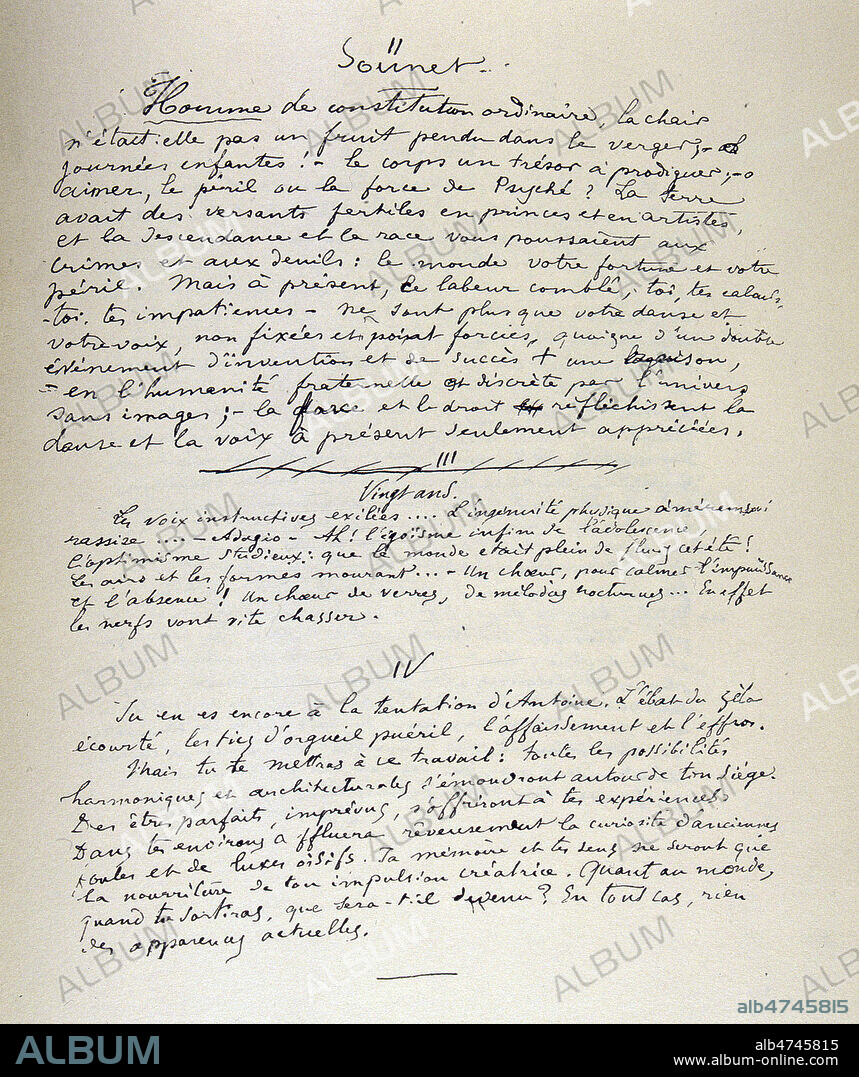 II
Sonnet.
Homme de constitution ordinaire, la chair
n'était-elle pas un fruit pendu dans le verger; - ô
journées enfantes! - le corps un trésor à prodiguer; - ô
aimer, le péril ou la force de Psyché? La terre
avait des versants fertiles en princes et en artistes,
et la descendance et la race vous poussaient aux
crimes et aux deuils: le monde votre fortune et votre
péril. Mais à présent, ce labeur comblé; toi, tes calculs,
- toi, tes impatiences - ne sont plus que votre danse et
votre voix, non fixées et point forcées, quoique d'un double
événement d'invention et de succès + une raison,
- en l'humanité fraternelle et discrète par l'univers
sans images; - la force et le droit réfléchissent la
danse et la voix à présent seulement appréciées.
III
Vingt ans.
Les voix instructives exilées.... L'ingénuité physique amèrement
rassise.... - Adagio - Ah! l'égoïsme infini de l'adolescence
l'optimisme studieux: que le monde était plein de fleurs cet été!
Les airs et les formes mourant... - Un chœur, pour calmer l'impuissance
et l'absence! Un chœur de verres, de mélodies nocturnes... En effet
les nerfs vont vite chasser.
IV
Tu en es encore à la tentation d'Antoine. L'ébat du zèle
écourté, les tics d'orgueil puéril, l'affaissement et l'effroi.
Mais tu te mettras à ce travail: toutes les possibilités
harmoniques et architecturales s'émouvront autour de ton siège.
Des êtres parfaits, imprévus, s'offriront à tes expériences
Dans tes environs affluera rêveusement la curiosité d'anciennes
foules et de luxes oisifs. Ta mémoire et tes sens ne seront que
la nourriture de ton impulsion créatrice. Quant au monde,
quand tu sortiras, que sera-t-il devenu? En tout cas, rien
des apparences actuelles.
alb4745815
ALBUM
alb4745815
www.album-online.com